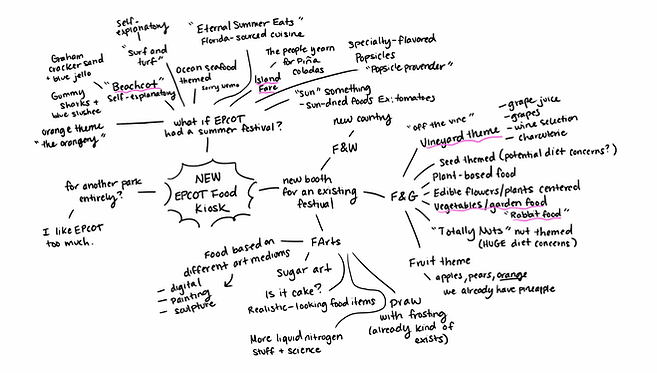 self-
explanatory
"Surf and
turf"
"Eternal Summer Eats"
Florida-sourced cuisine
Graham
cracker sand
+ blue jello
Gummy
sharks +
blue slushee
"Beachcot"
self-explanatory
Ocean seafood
themed
sorry Nemo
The people yearn
for Piña
coladas
Island
Fare
Specially-flavored
Popsicles
"Popsicle provender"
"Sun" something
-sun-dried foods Ex: tomatoes
orange theme
"the orangery"
what if EPCOT
had a summer festival?
NEW
EPCOT Food
Kiosk
for another park
entirely?
I like EPCOT
too much.
new booth
for an existing
festival
new country
F&W
F&G
"off the vine"
Vineyard theme
- grape juice
- grapes
- wine selection
- charcuterie
Seed themed (potential diet concerns?)
Plant-based food
Edible flowers/plants centered
Vegetables/garden food
"Rabbit food"
"Totally Nuts" nut themed
(HUGE diet concerns)
Fruit theme
apples, pears, orange
we already have pineapple
FArts
Food based on
different art mediums
- digital
- painting
- sculpture
Sugar art
Is it cake?
Realistic-looking food items
More liquid nitrogen
stuff + science
Draw
with frosting
(already kind of
exists)